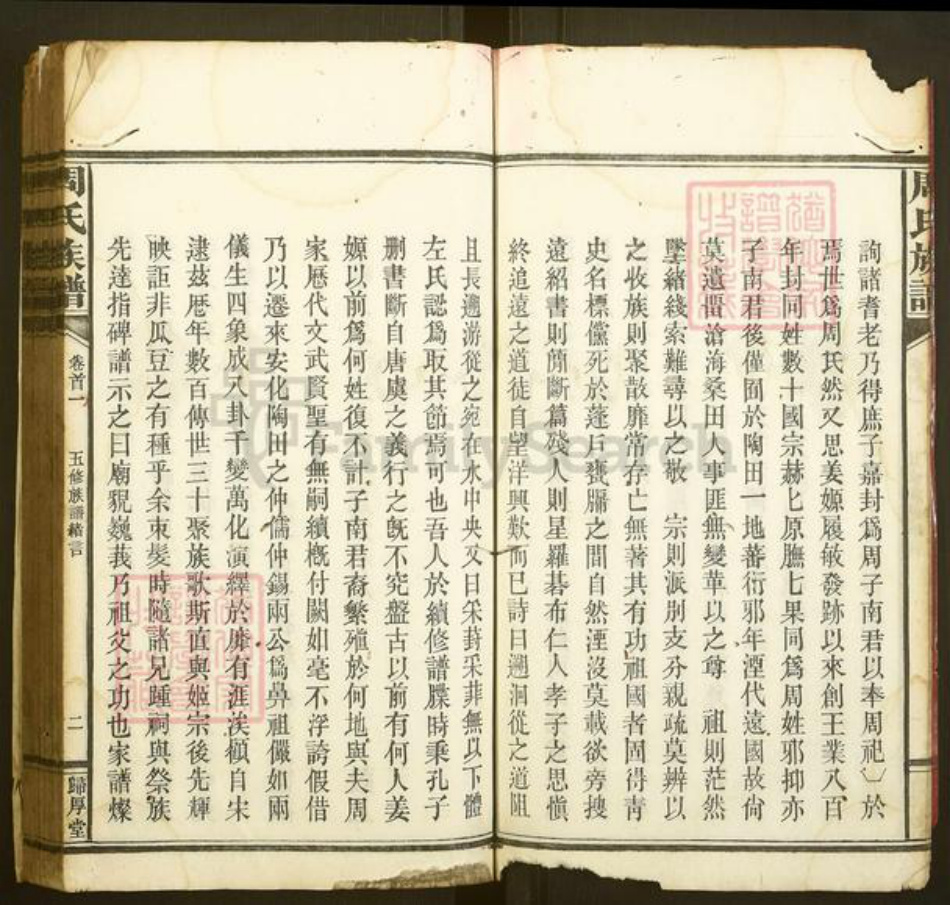 周氏族譜
詢諸耆老乃得庶子嘉封爲周子南君以奉周祀於
焉世爲周氏然又思姜嫄履敏發跡以來創王業八百
年封同姓數十國宗赫匕原膴匕果同爲周姓邪抑亦
子南君後僅囿於陶田一地蕃衍邪年湮代遠國故尙
莫遺畱滄海桑田人事匪無變革以之尊 祖則茫然
墜緒綫索難尋以之敬 宗則派別支分親疏莫辨以
之收族則聚散靡常存亡無著其有功祖國者固得靑
史名標儻死於蓬戶甕牖之間自然湮沒莫載欲旁搜
遠紹書則簡斷篇殘人則星羅碁布仁人孝子之思愼
終追遠之道徒自望洋興歎而已詩曰遡洄從之道阻
且長遡游從之宛在水中央又曰采葑采菲無以下體
左氏認爲取其節焉可也吾人於續修譜牒時秉孔子
刪書斷自唐虞之義行之旣不究盤古以前有何人姜
嫄以前爲何姓復不計子南君裔繫殖於何地與夫周
家歷代文武賢聖有無嗣續槪付闕如毫不浮誇假借
乃以遷來安化陶田之仲儒仲錫兩公爲鼻祖儼如兩
儀生四象成八卦千變萬化演繹於靡有涯涘顧自宋
逮茲厯年數百傳世三十聚族歌斯直與姬宗後先輝
映詎非瓜豆之有種乎余束髮時隨諸兄踵祠與祭族
先達指碑譜示之曰廟貌巍莪乃祖父之功也家譜燦
周氏族譜
卷首一
五修族譜緒言
二
歸厚堂
FamilySearch